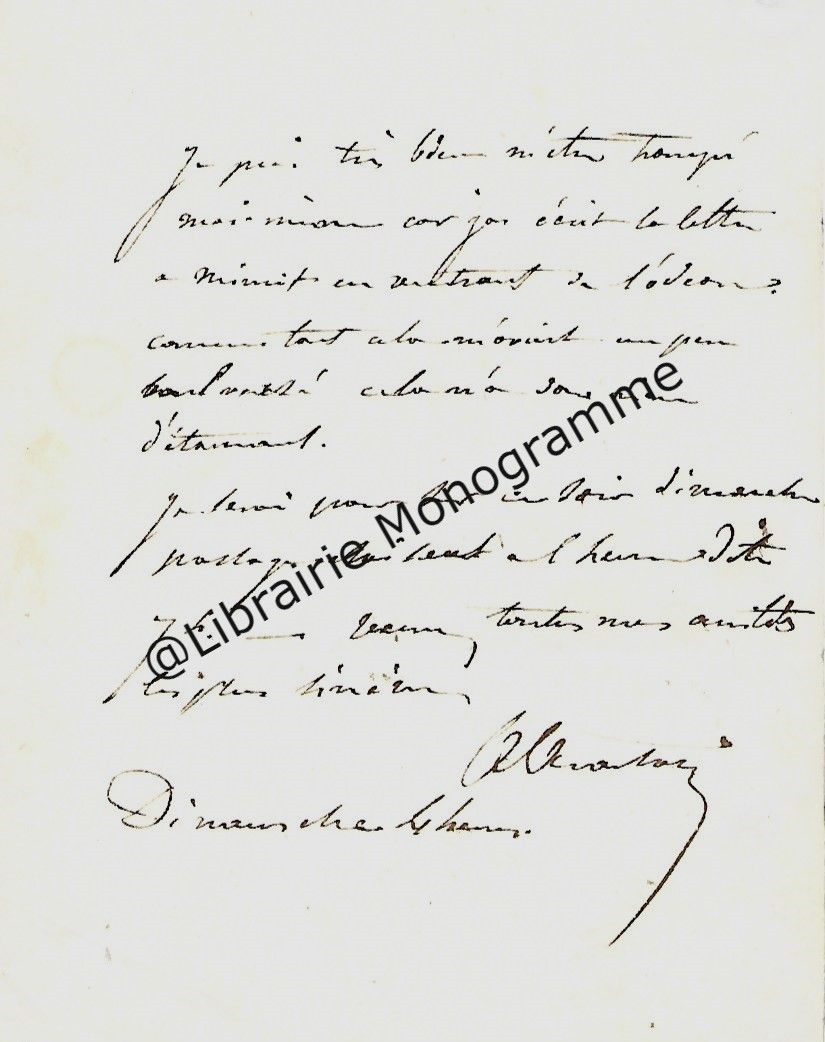 Je puis très bien m'être trompé
moi-même car j'ai écrit la lettre
a minuit en rentrant de l'odéon
comme tout cela m'avait un peu
boulversé cela n'a donc rien
d'étonnant.
Je serai pour ce soir dimanche
passage a l'heure dite
toutes mes amitiés
les plus sincères
Dimanche 4 heures.
@Librairie Monogramme